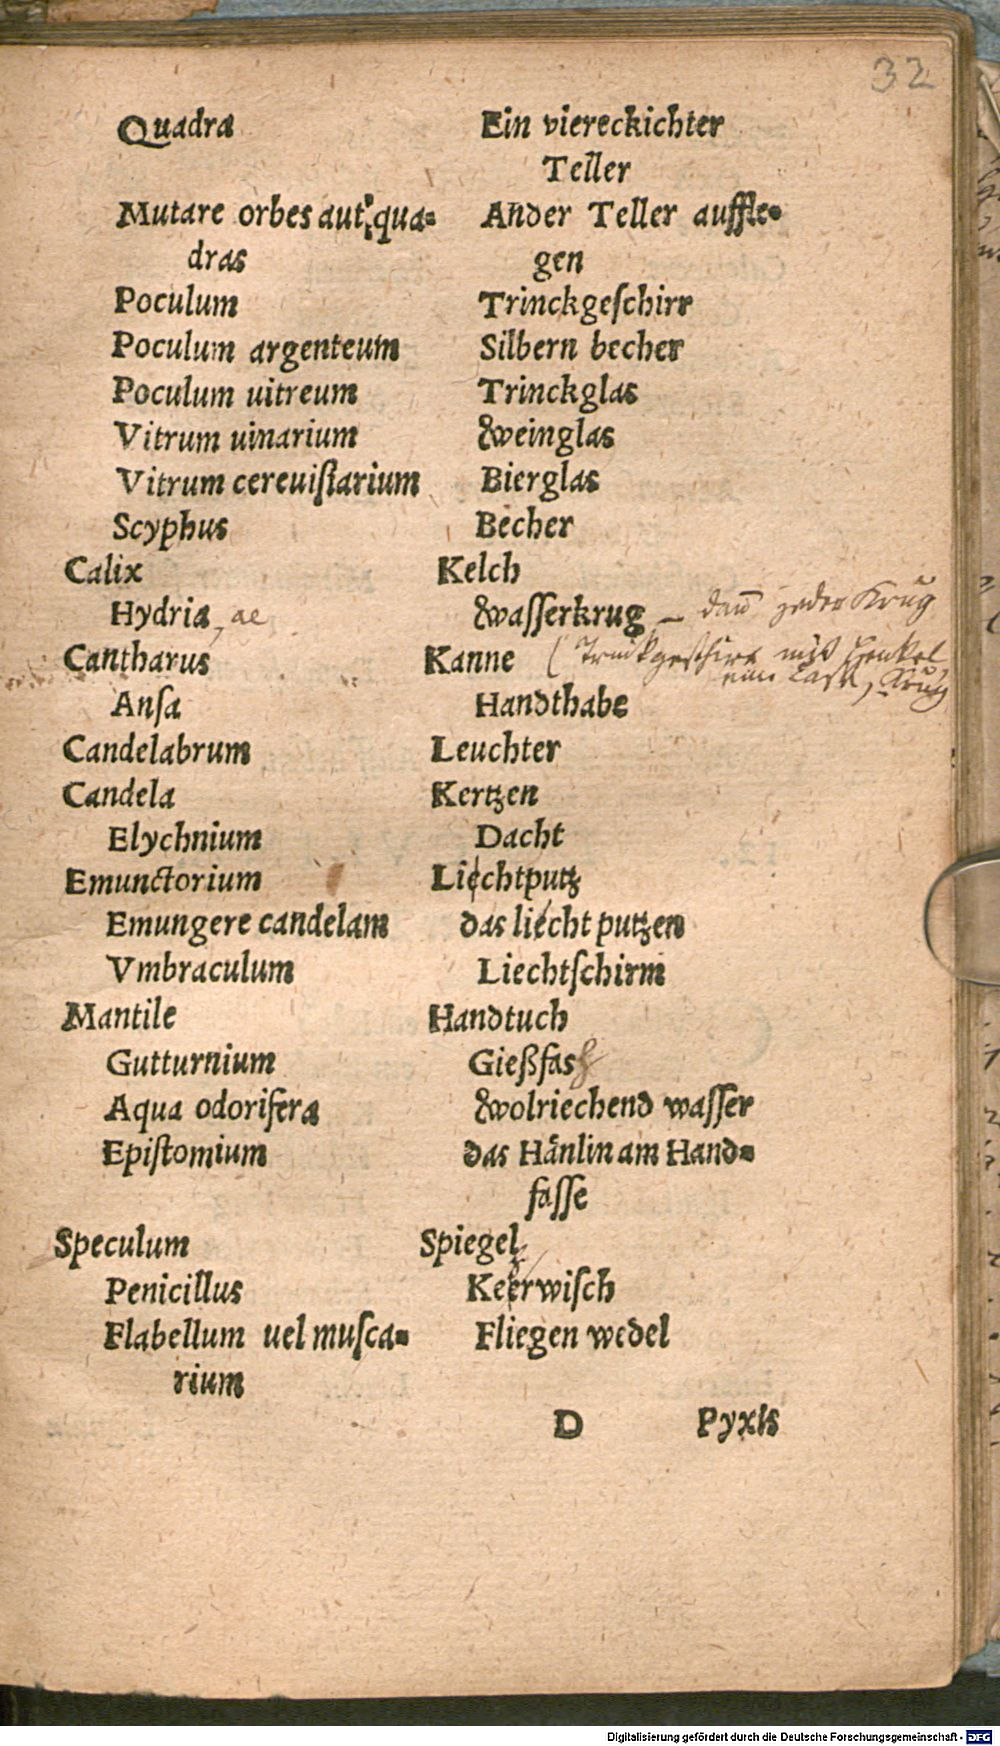 32
Quadra Ein viereckichter
Teller
Mutare orbes aut qua- Ander Teller auffle-
dras gen
Poculum Trinckgeſchirr
Poculum argenteum Silbern becher
Poculum uitreum Trinckglas
Vitrum uinarium Weinglas
Vitrum cereuiſiarium Bierglas
Scyphus Becher
Calix Kelch
Hydria, ae Waſſerkrug – jeder Krug
Cantharus Kanne ( Trinkgeschirr mit Henkel
Krug
Anſa Handthabe
Candelabrum Leuchter
Candela Kertzen
Elychnium Dacht
Emunctorium Liechtputz
Emungere candelam das liecht putzen
Vmbraculum Liechtſchirm
Mantile Handtuch
Gutturnium Gießfas
Aqua odorifera Wolriechend waſſer
Epiſtomium das Hänlin am Hand-
faſſe
Speculum Spiegel
Penicillus Keerwiſch
Flabellum uel muſca- Fliegen wedel
rium
D Pyxis
Digitalisierung gefördert durch die Deutsche Forschungsgemeinschaft - DFG